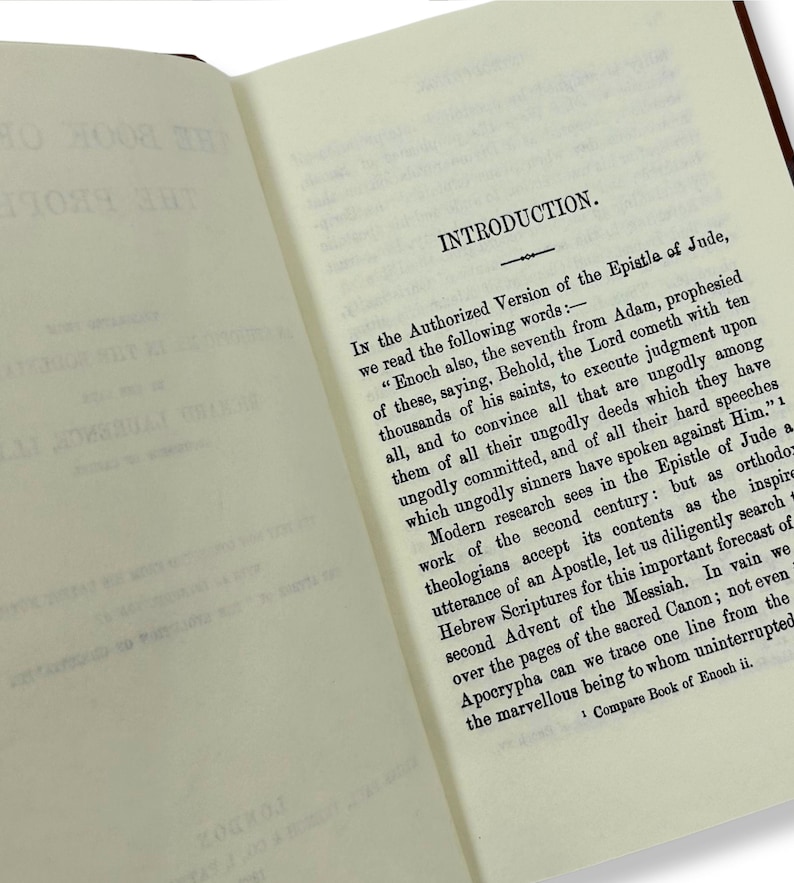 INTRODUCTION.
IN the Authorized Version of the Epistle of Jude,
we read the following words:—
"Enoch also, the seventh from Adam, prophesied
of these, saying, Behold, the Lord cometh with ten
thousands of his saints, to execute judgment upon
all, and to convince all that are ungodly among
them of all their ungodly deeds which they have
ungodly committed, and of all their hard speeches
which ungodly sinners have spoken against Him."¹
Modern research sees in the Epistle of Jude a
work of the second century: but as orthodox
theologians accept its contents as the inspire
utterance of an Apostle, let us diligently search t
Hebrew Scriptures for this important forecast of
second Advent of the Messiah. In vain we
over the pages of the sacred Canon; not even
Apocrypha can we trace one line from the
the marvellous being to whom uninterrupted
¹ Compare Book of Enoch ii.